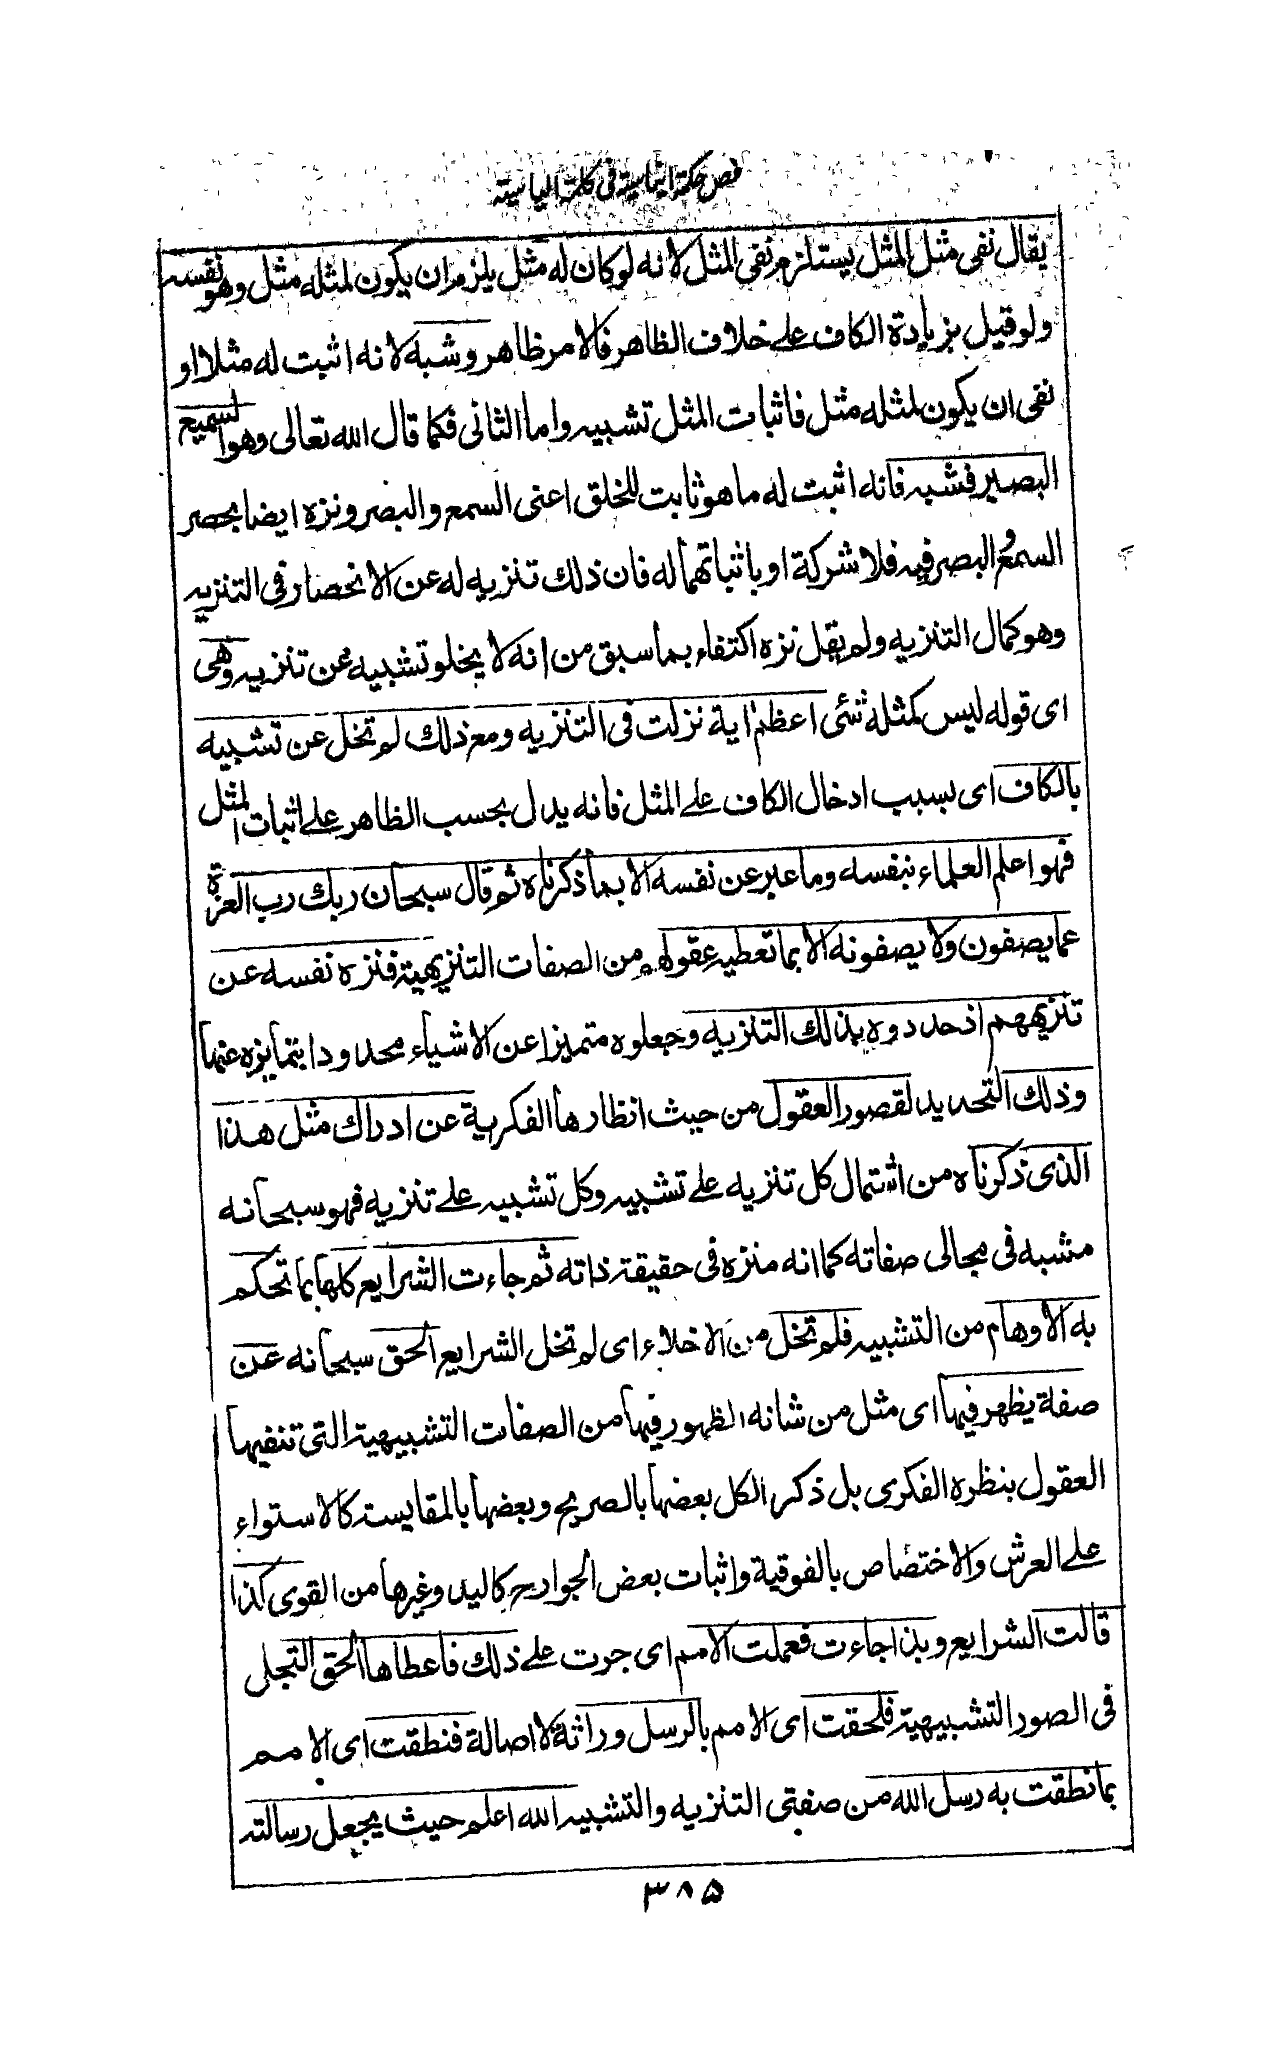 فص حكمة ايناسية فى كلمة الياسية
يقال نفى مثل المثل يستلزم نفى المثل لانه لوكان له مثل يلزم ان يكون لمثله مثل وهو نفسه
ولو قيل بزيادة الكاف على خلاف الظاهر فالامر ظاهر وشبه لانه اثبت له مثلا او
نفى ان يكون لمثله مثل فاثبات المثل تشبيه واما الثانى فكما قال الله تعالى وهو السميع
البصير فشبه فانه اثبت له ما هو ثابت للخلق اعنى السمع والبصر ونزه ايضا بحصر
السمع والبصر فيه فلا شركة او باثباتهما له فان ذلك تنزيه له عن الانحصار فى التنزيه
وهو كمال التنزيه ولم يقل نزه اكتفاء بما سبق من انه لا يخلو تشبيه عن تنزيه وهى
اى قوله ليس كمثله شئى اعظم اية نزلت فى التنزيه ومع ذلك لم تخل عن تشبيه
بالكاف اى بسبب ادخال الكاف على المثل فانه يدل بحسب الظاهر على اثبات المثل
فهو اعلم العلماء بنفسه وما عبر عن نفسه الا بما ذكرناه ثم قال سبحان ربك رب العزة
عما يصفون ولا يصفونه الا بما تعطيه عقولهم من الصفات التنزيهية فنزه نفسه عن
تنزيههم اذ حددوه بذلك التنزيه وجعلوه متميزا عن الاشياء محدودا بتمايزه عنها
وذلك التحديد لقصور العقول من حيث انظارها الفكرية عن ادراك مثل هذا
الذى ذكرناه من اشتمال كل تنزيه على تشبيه وكل تشبيه على تنزيه فهو سبحانه
مشبه فى مجالى صفاته كما انه منزه فى حقيقة ذاته ثم جاءت الشرايع كلها بما تحكم
به الاوهام من التشبيه فلم تخل من الاخلاء اى لم تخل الشرايع الحق سبحانه عن
صفة يظهر فيها اى مثل من شانه الظهور فيها من الصفات التشبيهية التى تنفيها
العقول بنظره الفكرى بل ذكر الكل بعضها بالصريح وبعضها بالمقايسة كالاستواء
على العرش والاختصاص بالفوقية واثبات بعض الجوارح كاليد وغيرها من القوى كذا
قالت الشرايع وبذا جاءت فعملت الامم اى جرت على ذلك فاعطاها الحق التجلى
فى الصور التشبيهية فلحقت اى الامم بالرسل وراثة لا اصالة فنطقت اى الامم
بما نطقت به رسل الله من صفتى التنزيه والتشبيه الله اعلم حيث يجعل رسالته
٣٨٥